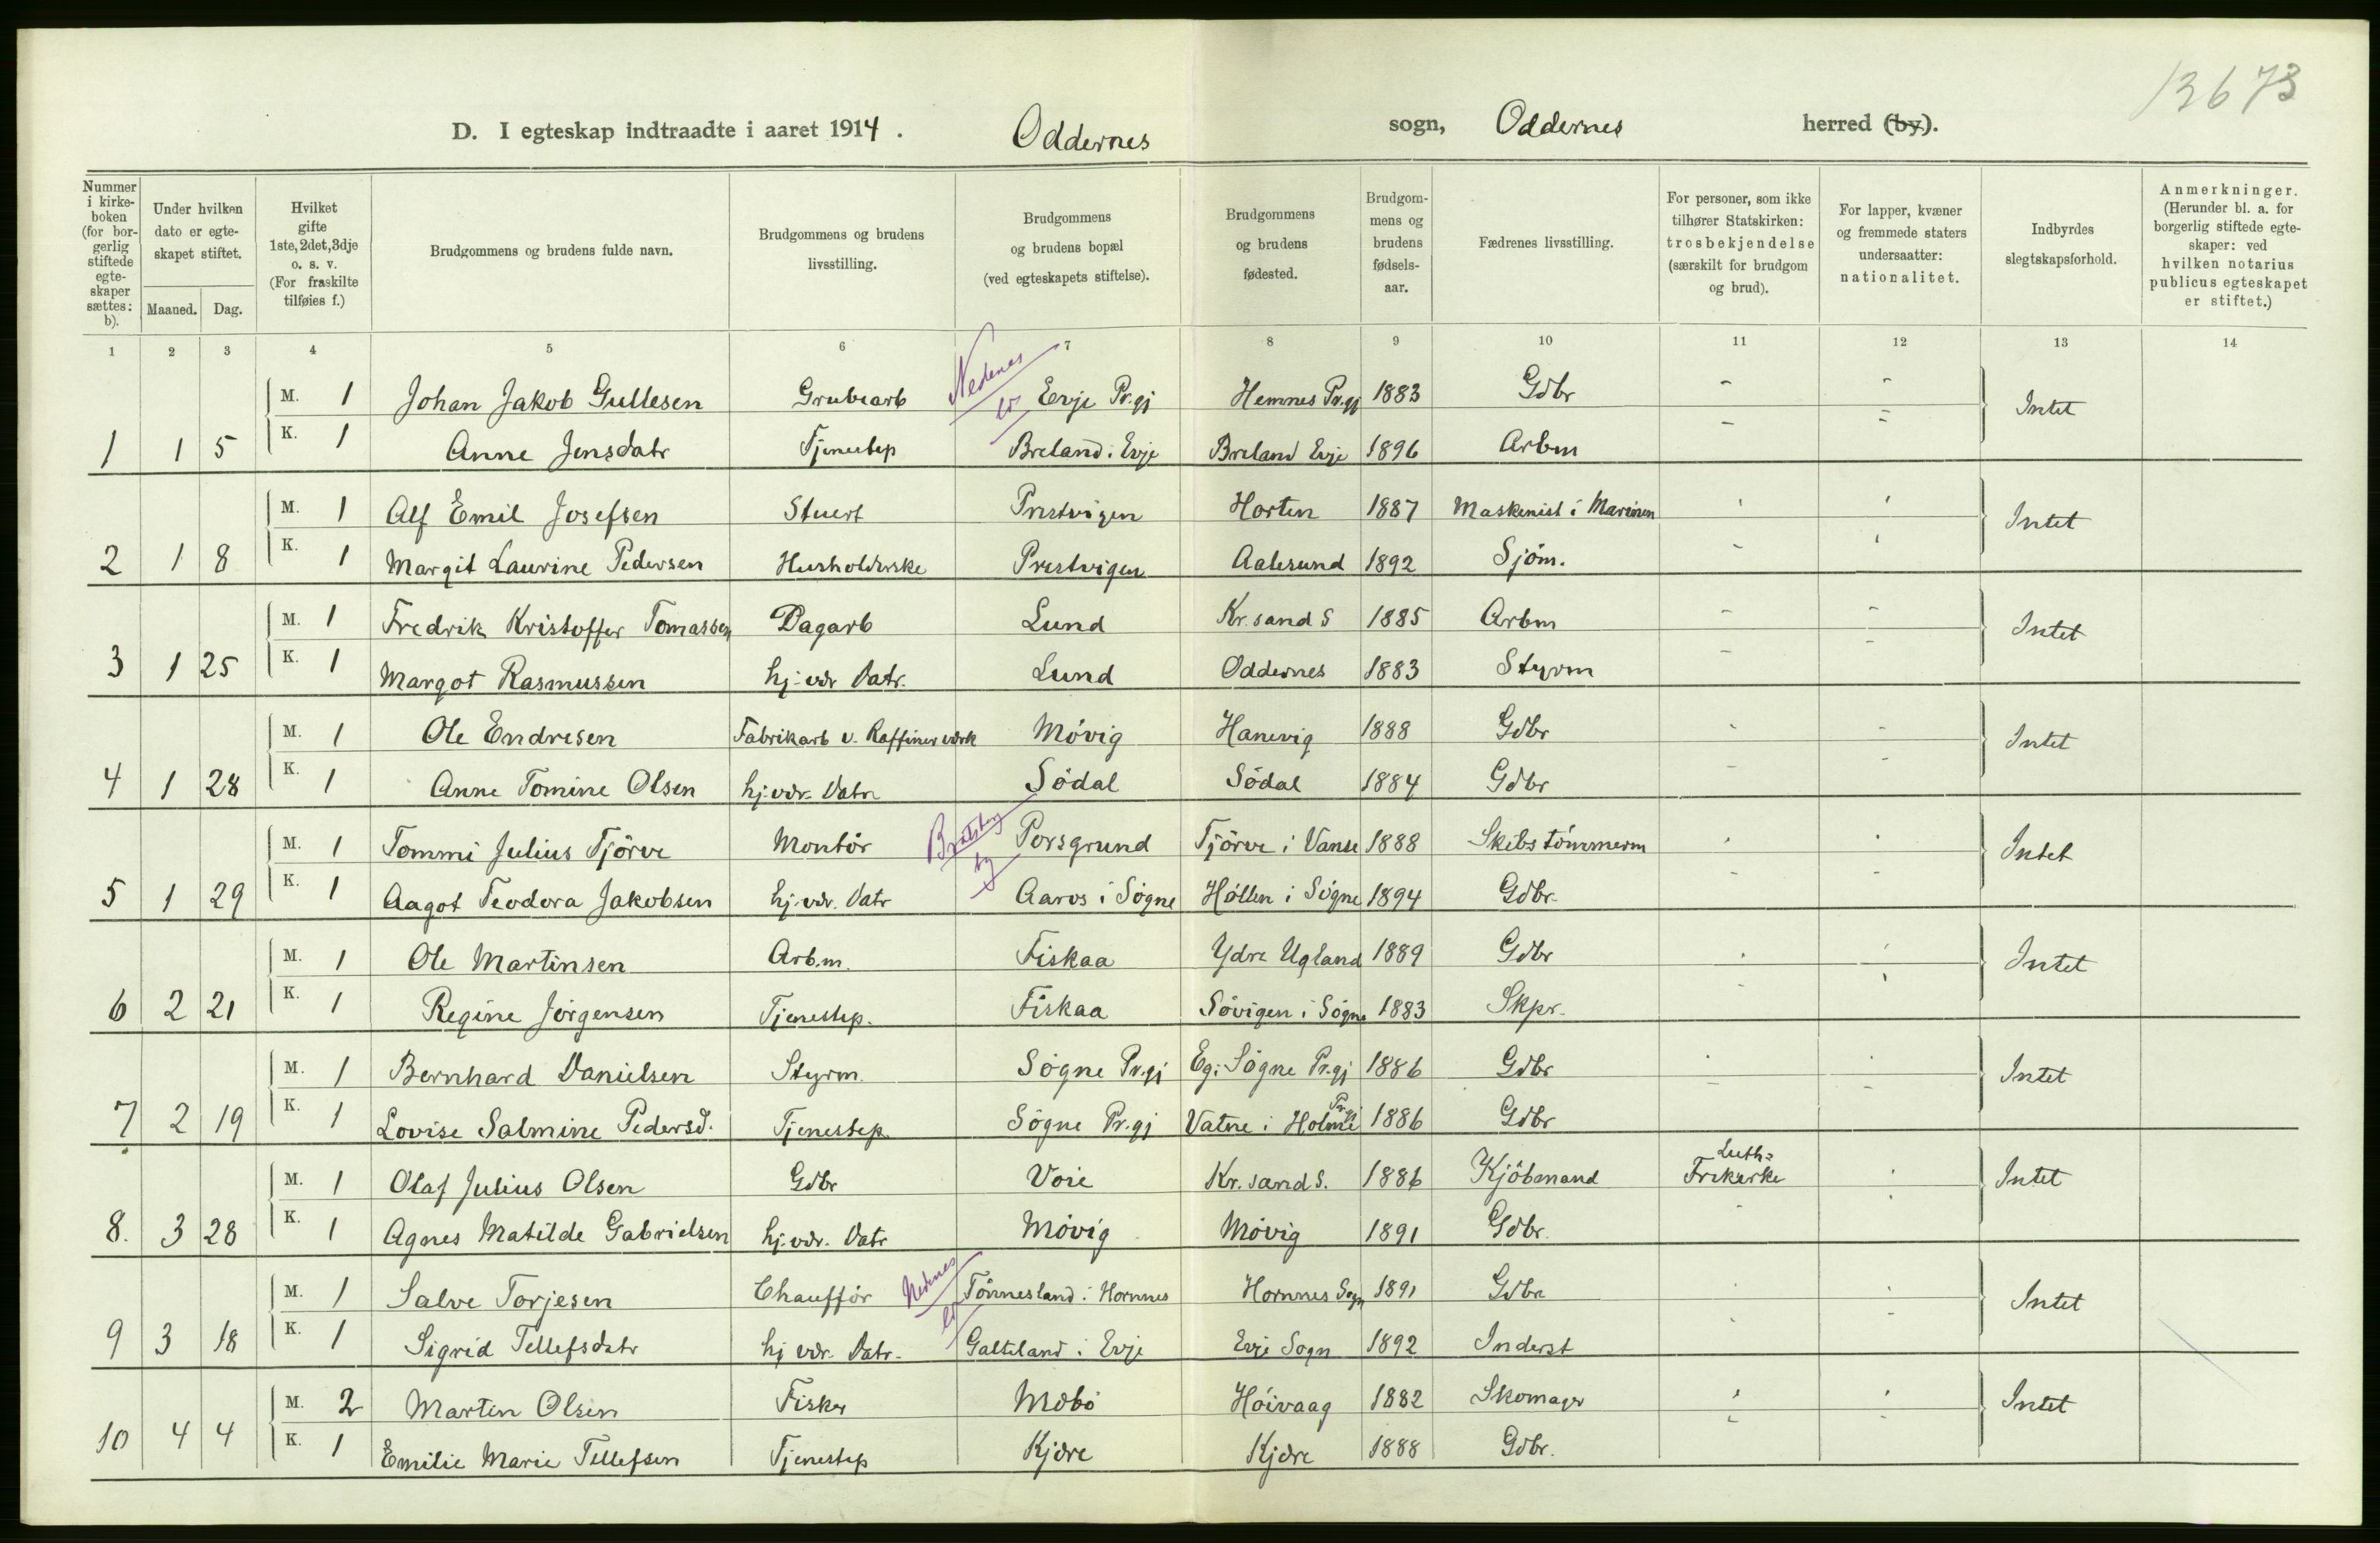 13673
D. I egteskap indtraadte i aaret 1914. Oddernes sogn, Oddernes herred (by).
Nummer i kirkeboken (for borgerlig stiftede egteskaper sættes: b).
Under hvilken dato er egteskapet stiftet.
Maaned. Dag.
Hvilket gifte 1ste, 2det, 3dje o. s. v. (For fraskilte tilføies f.)
Brudgommens og brudens fulde navn.
Brudgommens og brudens livsstilling.
Brudgommens og brudens bopæl (ved egteskapets stiftelse).
Brudgommens og brudens fødested.
Brudgommens og brudens fødselsaar.
Fædrenes livsstilling.
For personer, som ikke tilhører Statskirken: trosbekjendelse (særskilt for brudgom og brud).
For lapper, kvæner og fremmede staters undersaatter: nationalitet.
Indbyrdes slegtskapsforhold.
Anmerkninger. (Herunder bl. a. for borgerlig stiftede egteskaper: ved hvilken notarius publicus egteskapet er stiftet.)
1 2 3 4 5 6 7 8 9 10 11 12 13 14
M. 1 Johan Jakob Gullesen Grubearb Nedenes Evje Pr.gj Hemnes Pr.gj 1883 Gdbr - - Intet
1 1 5 K. 1 Anne Jensdatr Tjenestep Breland i Evje Breland Evje 1896 Arbm - -
M. 1 Alf Emil Josefsen Stuert Prestvigen Horten 1887 Maskenist i Marinen Intet
2 1 8 K. 1 Margit Laurine Pedersen Husholderske Prestvigen Aalesund 1892 Sjöm.
M. 1 Fredrik Kristoffer Tomassen Dagarb Lund Kr.sand S 1885 Arbm - - Intet
3 1 25 K. 1 Margot Rasmussen hj. vær. Datr. Lund Oddernes 1883 Styrm - -
M. 1 Ole Endresen Fabrikarb v. Raffinerværk Móvig Hanevig 1888 Gdbr - - Intet
4 1 28 K. 1 Anne Tomine Olsen hj. vær. Datr Södal Södal 1884 Gdbr - -
M. 1 Tommi Julius Tjörve Montör Bratsberg by Porsgrund Tjörve i Vanse 1888 Skibstömmerm Intet
5 1 29 K. 1 Aagot Teodora Jakobsen hj. vær. Datr Aaros i Sögne Höllen i Sögne 1894 Gdbr. - -
M. 1 Ole Martinsen Arb.m. Fiskaa Ydre Ugland 1889 Gdbr Intet
6 2 21 K. 1 Regine Jörgensen Tjenestep. Fiskaa Sövigen i Sögne 1883 Skpr.
M. 1 Bernhard Danielsen Styrm. Sögne Pr.gj Eg i Sögne Pr.gj 1886 Gdbr Intet
7 2 19 K. 1 Lovise Salmine Pedersd. Tjenestep. Sögne Pr.gj Vatne i Holme Pr.gj 1886 Gdbr - -
M. 1 Olaf Julius Olsen Gdbr Voie Kr.sand S. 1886 Kjöbmand Luth. Frikirke Intet
8. 3 28 K. 1 Agnes Matilde Gabrielsen hj. vær. Datr Mövig Mövig 1891 Gdbr.
M. 1 Salve Torjesen Chafför Nedenes Tönnesland i Hornnes Hornnes Sogn 1891 Gdbr Intet
9 3 18 K. 1 Sigrid Tellefsdatr hj vær. Datr. Galteland i Evje Evje Sogn 1892 Inderst
M. 2 Martin Olsen Fisker Mæbö Höivaag 1882 Skomager Intet
10 4 4 K. 1 Emilie Marie Tellefsen Tjenestep Kjære Kjære 1888 Gdbr. - -